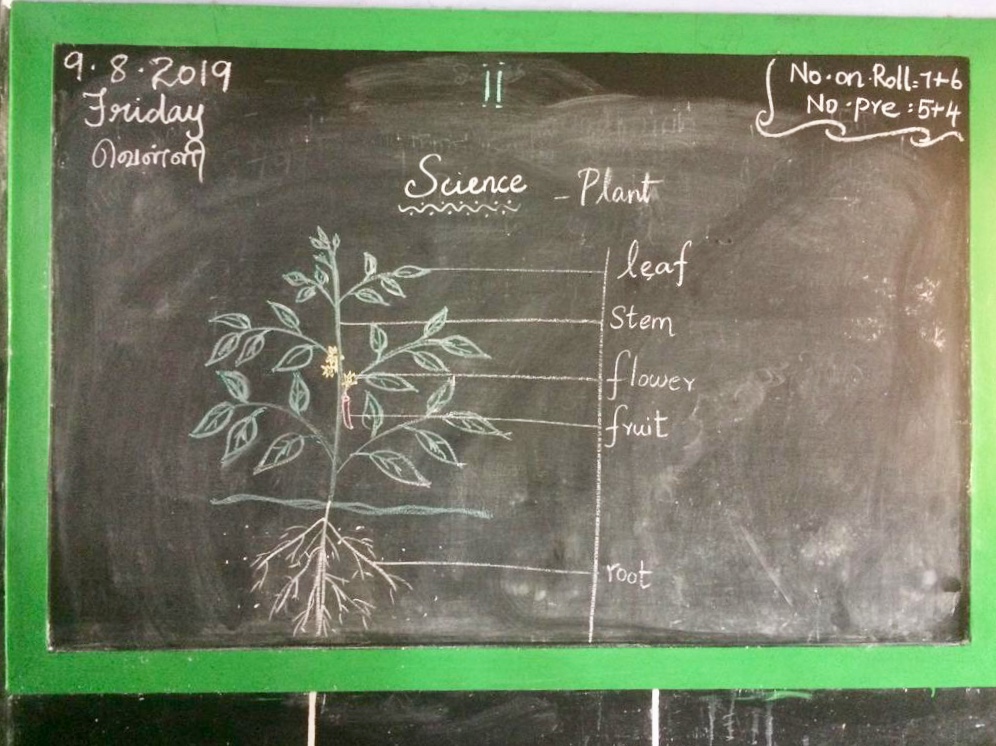 9.8.2019
Friday
வெள்ளி
II
No.on.Roll:7+6
No.pre:5+4
Science - Plant
leaf
Stem
flower
fruit
root